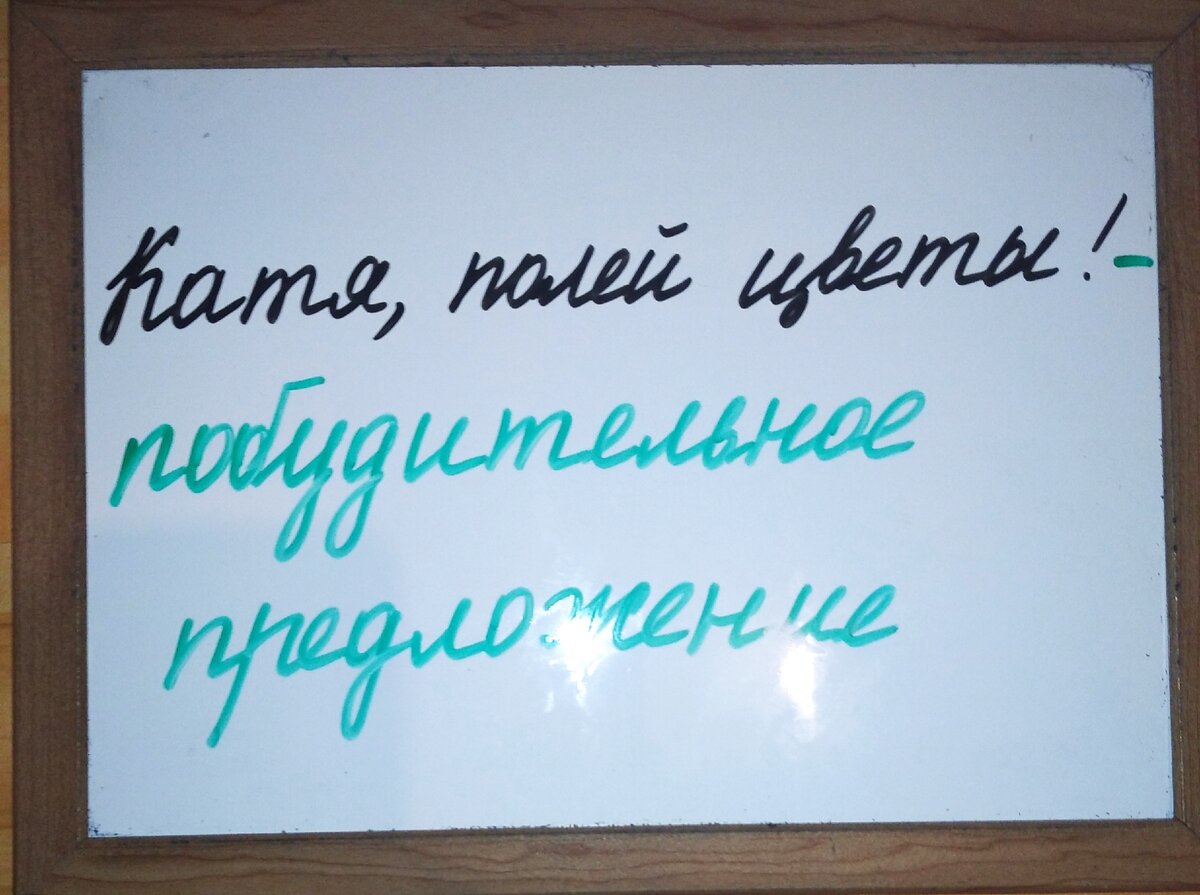 Катя, полей цветы! -
побудительное
предложение